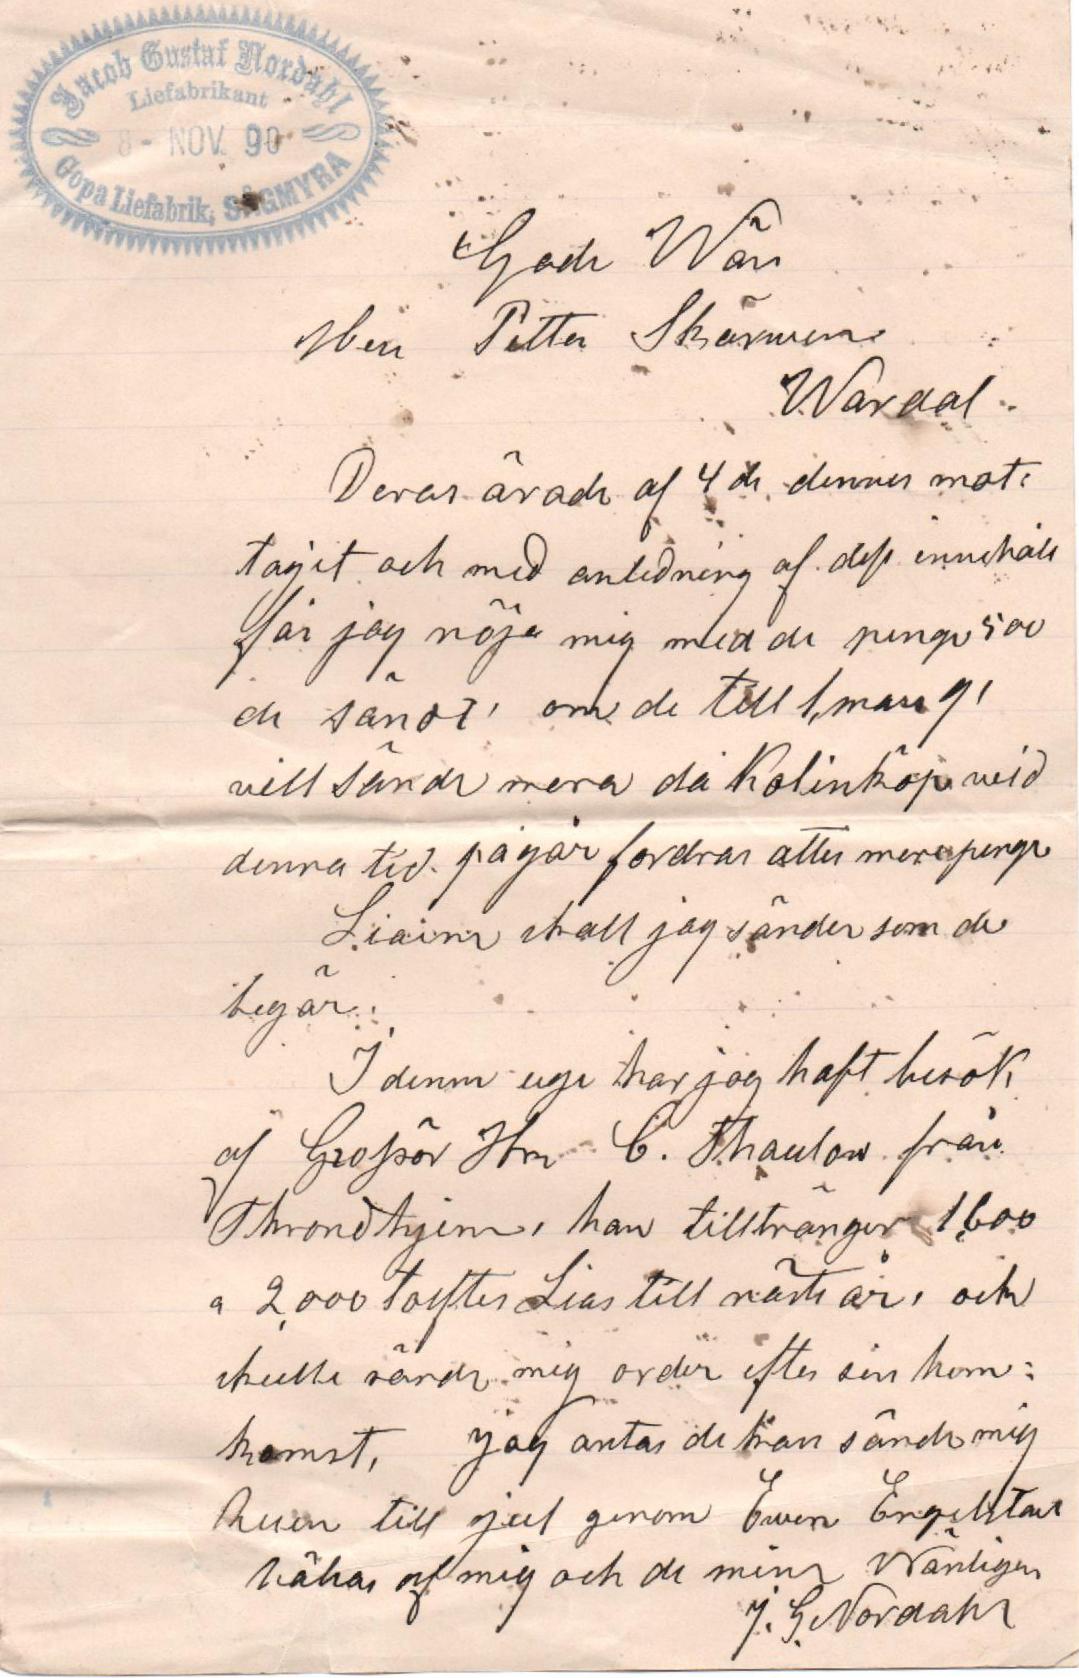 Jacob Gustaf Nordahl
Liefabrikant
8 - NOV. 90
Gopa Liefabrik, SÅGMYRA
Gode Wän
Herr Petter Skärwen
Wärdal.
Deras ärade af 4 de. dennes mot:
tagit och med anledning af dess innehåll
får jag nöja mig med de penge 500
de sändt, om de till 1, mars 91
vill sände mera då Kolinköp veid
denna tid. pågår fordras atter mera penge
Liarne skall jag sänder som de
begär.
I denne uge har jag haft besök
af Grossör Hrr C. Thaulow från
Throndhjem, han tilltränger 1600
a 2,000 tolfter Liar till näste år, och
skulle sände mig order efter sin hem:
komst, Jag antar de kan sände mig
till jul genom Ewen Engelstad
hälsas af mig och de mine Wänligen
J. G. Nordahl